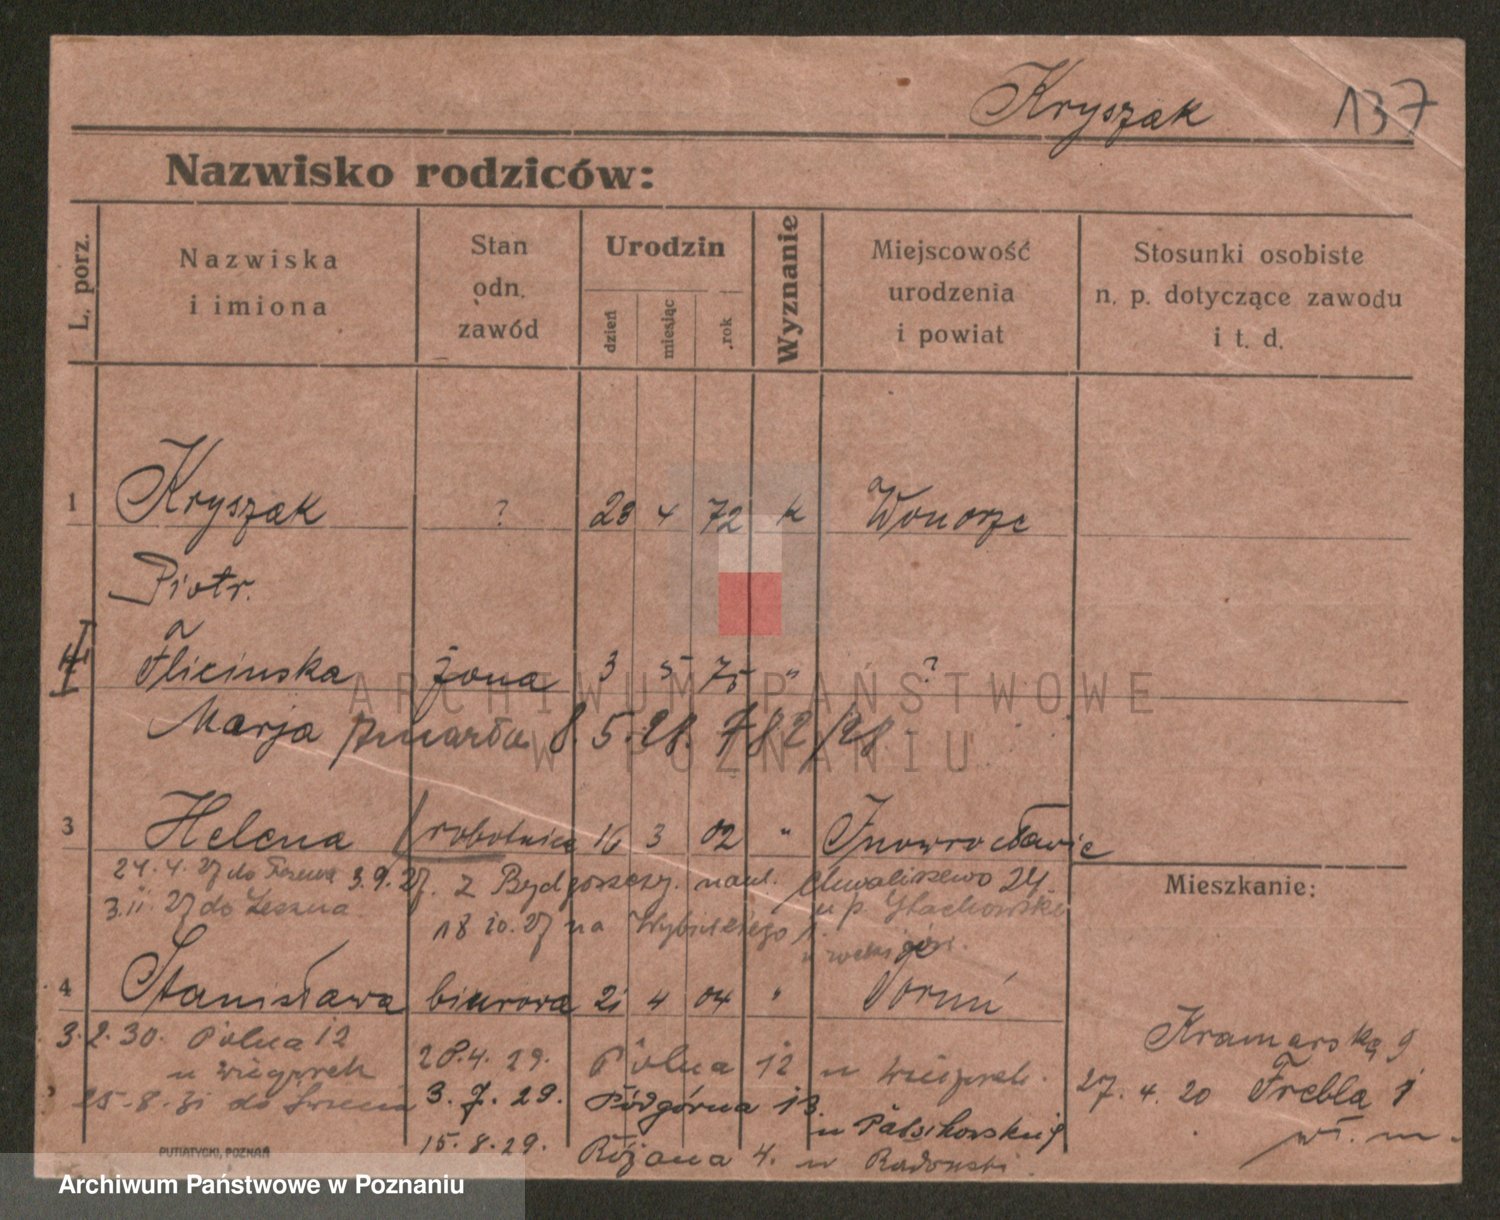 Kryszak 137
Nazwisko rodziców:
L. porz.
Nazwiska i imiona
Stan odn. zawód
Urodzin
dzień miesiąc rok
Wyznanie
Miejscowość urodzenia i powiat
Stosunki osobiste n. p. dotyczące zawodu i t. d.
1 Kryszak ? 23 4 72 k Wonorze
Piotr.
żona 3 5 75 " ?
Marja zmarła 8. 5. 28. 782/28
3 Helena robotnica 16 3 02 " Inowrocławie
24.4.27 do 3.9.27. z Bydgoszczy. Chwaliszewo 24.
3.11.27 do Leszna u p. Głachowski
18 10.27 na Wybickiego 1.
Mieszkanie:
4 Stanisława biurowa 21 4 04 " Toruń
3.2.30. Polna 12
28.4.29. Polna 12 u
25-8-31 do 3.7.29. Podgórna 13
15.8.29. Różana 4. u Radomski.
Kramarską 9
27. 4. 20 Frebla 1
w. m.
PUTIATYCKI, POZNAŃ
ARCHIWUM PAŃSTWOWE
W POZNANIU
Archiwum Państwowe w Poznaniu